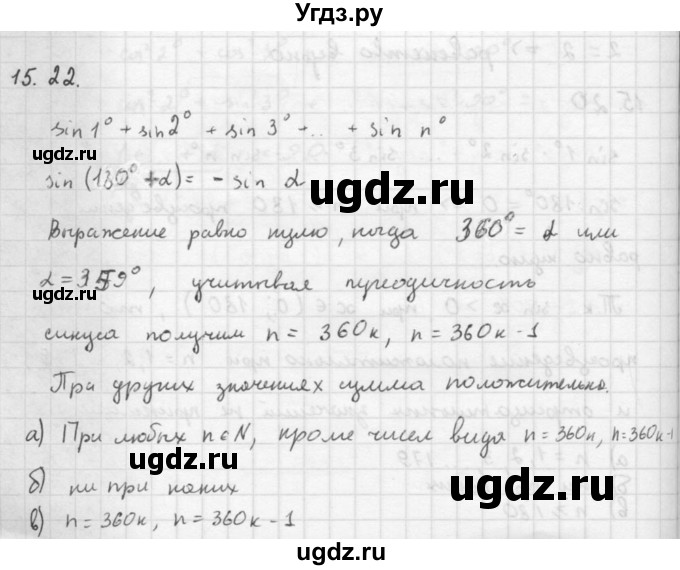 Угдз.ру
15.22.
sin 1° + sin 2° + sin 3° + .. + sin n°
ugdz.ru
ugdz.ru
sin (180° + α) = - sin α
Выражение равно нулю, когда 360° = α или
ugdz.ru
α = 359°, учитывая периодичность
синуса получим n = 360к, n = 360к - 1
ugdz.ru
ugdz.ru
При других значениях сумма положительна.
а) При любых n ∈ N, кроме чисел вида n = 360к, n = 360к - 1
ugdz.ru
б) ни при каких
ugdz.ru
в) n = 360к, n = 360к - 1
ugdz.ru
ugdz.ru